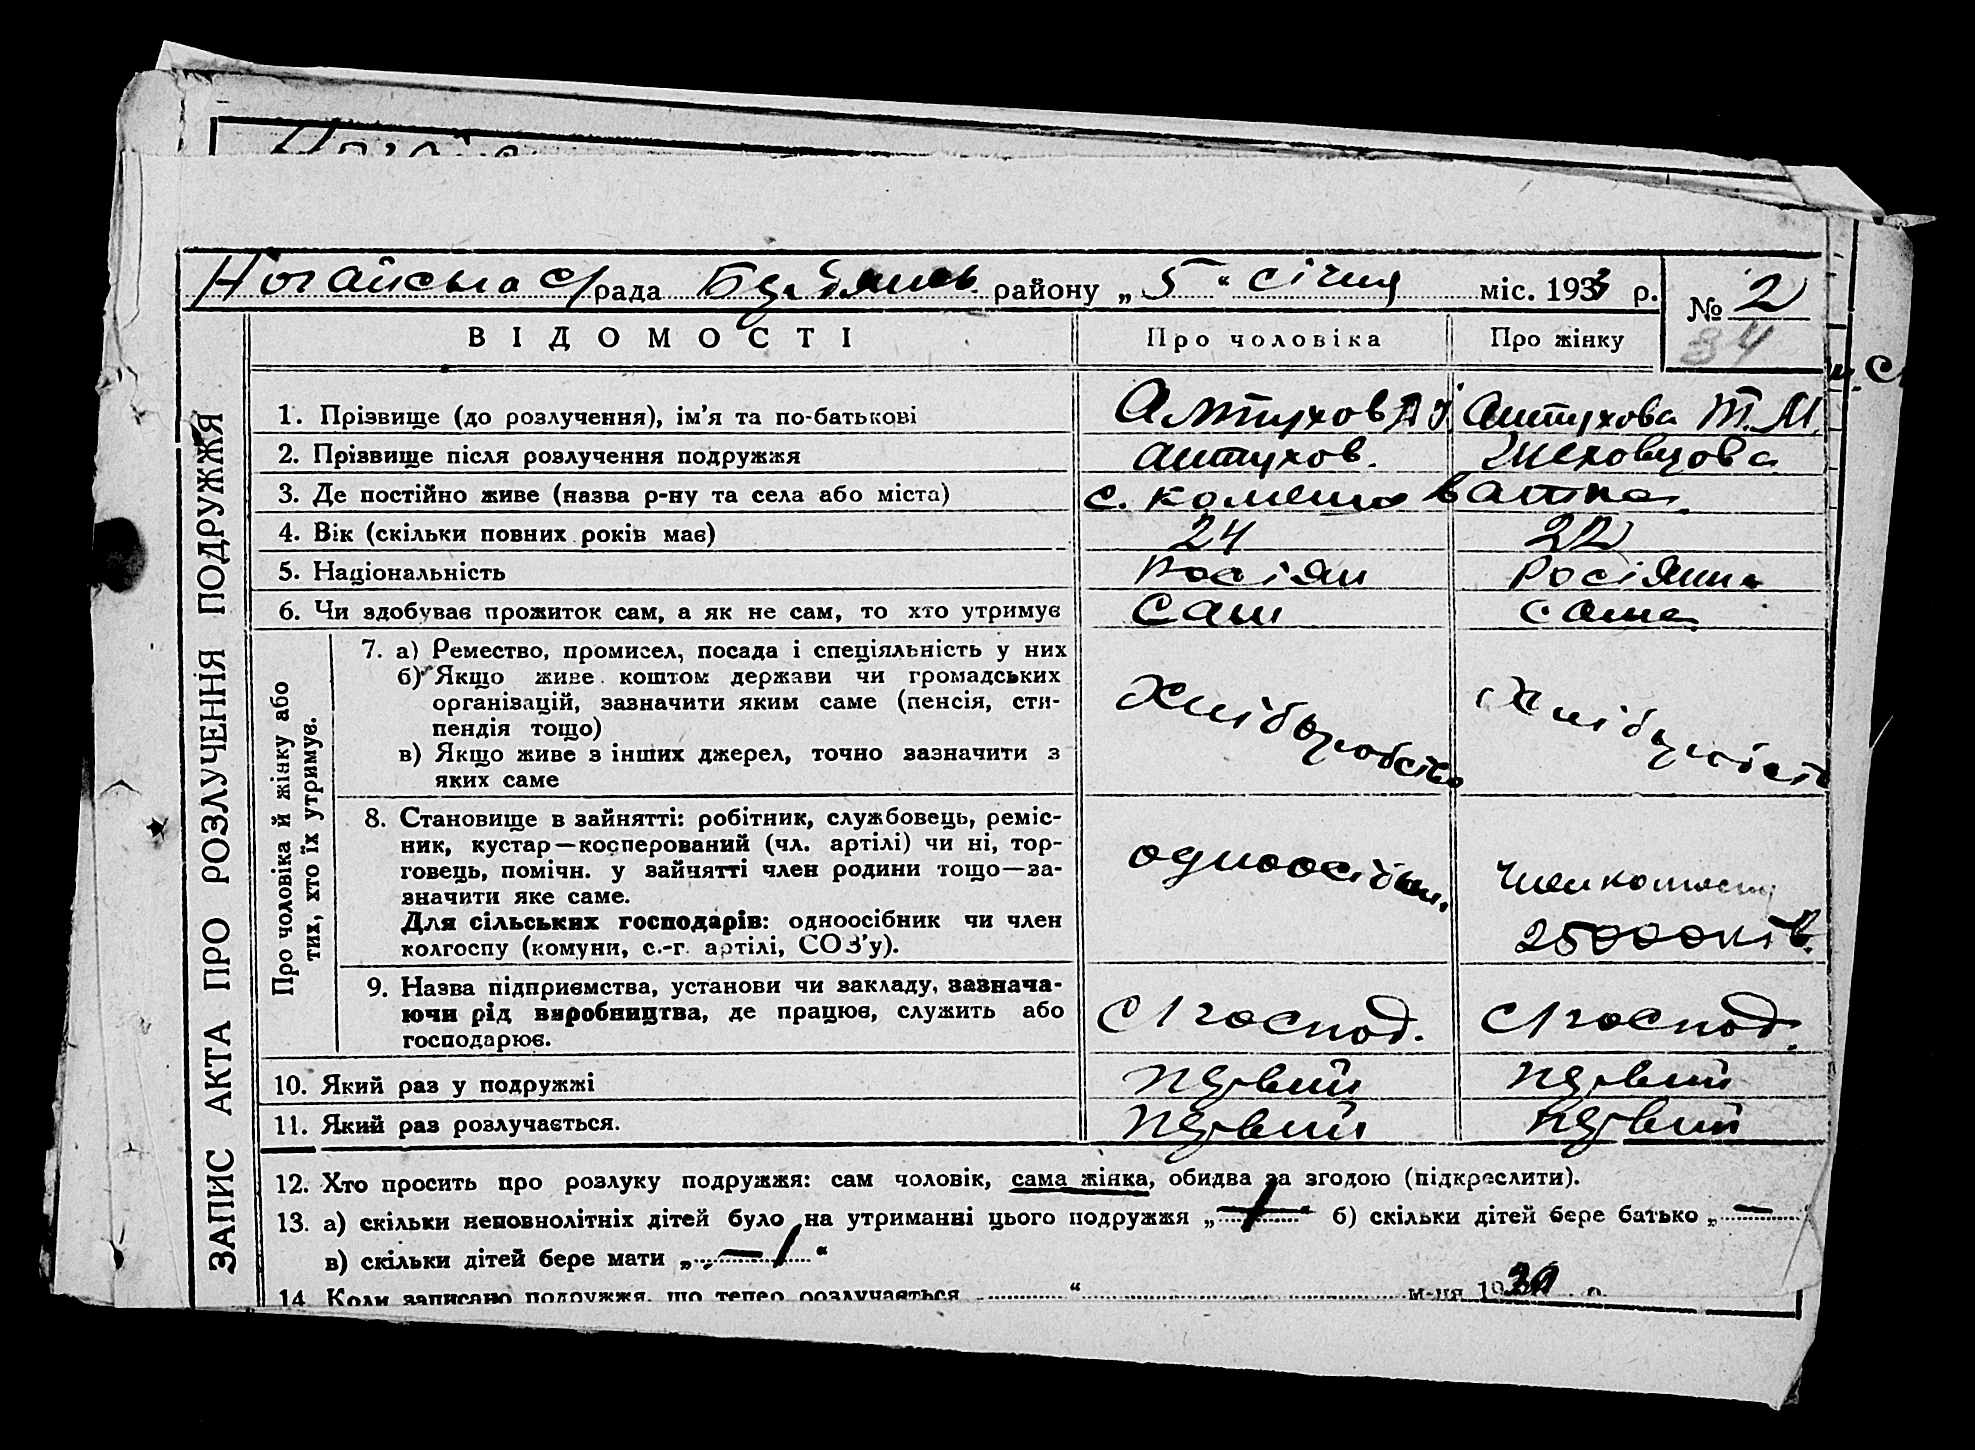 Ногайська с/рада Бердянськ. району „ 5 “ січня міс. 1933 р. № 2
84
ВІДОМОСТІ Про чоловіка Про жінку
1. Прізвище (до розлучення), ім'я та по-батькові Алтухов Алтухова Т. М.
2. Прізвище після розлучення подружжя Алтухов. Шеховцова
3. Де постійно живе (назва р-ну та села або міста)
4. Вік (скільки повних років має) 24 22
5. Національність Росіян Росіянка
6. Чи здобував прожиток сам, а як не сам, то хто утримує Сам сама
7. а) Ремество, промисел, посада і спеціяльність у них
б) Якщо живе коштом держави чи громадських
організацій, зазначити яким саме (пенсія, сти-
пендія тощо)
в) Якщо живе з інших джерел, точно зазначити з
яких саме
Хліборобство Хліборобств
8. Становище в зайнятті: робітник, службовець, реміс-
ник, кустар—косперований (чл. артілі) чи ні, тор-
говець, помічн. у зайнятті член родини тощо—за-
значити яке саме.
Для сільських господарів: одноосібник чи член
колгоспу (комуни, с.-г. артілі, СОЗ'у).
одноосібн. член колгоспу
25000ків.
9. Назва підприємства, установи чи закладу, зазнача-
ючи рід виробництва, де працює, служить або
господарює.
С/господ. С/господ.
10. Який раз у подружжі первий первий
11. Який раз розлучається. первий первий
12. Хто просить про розлуку подружжя: сам чоловік, сама жінка, обидва за згодою (підкреслити).
13. а) скільки неповнолітніх дітей було на утриманні цього подружжя „ 1 “ б) скільки дітей бере батько „ — “
в) скільки дітей бере мати „ — 1 “
14. Коли записано подружжя, що тепер розлучається “ м-ця 1930 р.
ЗАПИС АКТА ПРО РОЗЛУЧЕННЯ ПОДРУЖЖЯ
Про чоловіка й жінку або
тих, хто їх утримує.